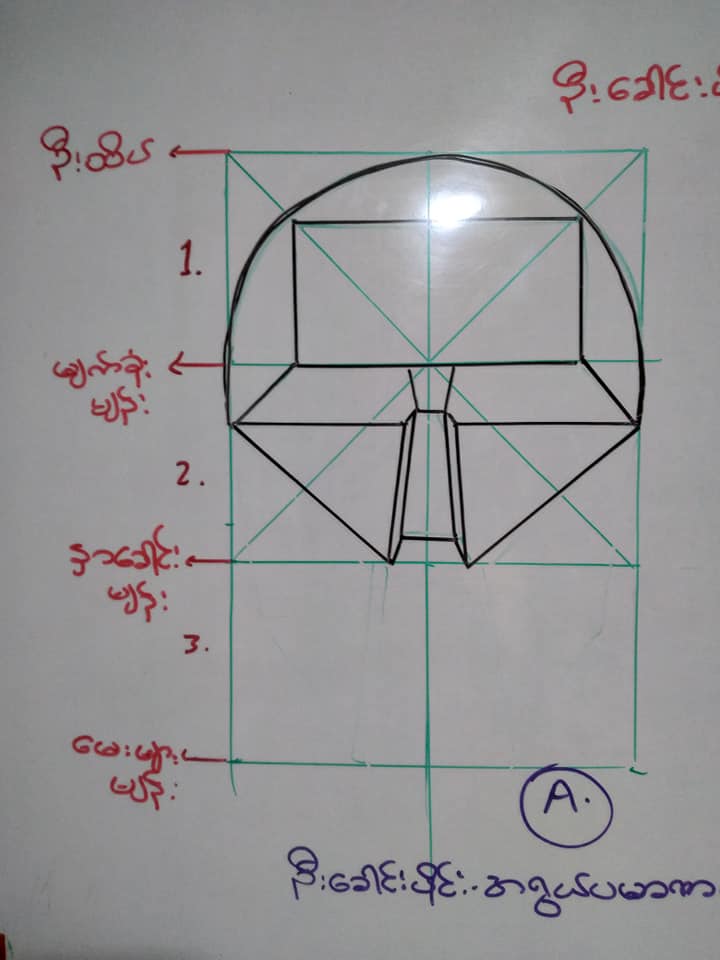 ဦးခေါင်း
ဦးထိပ်
1.
မျက်ခုံး
မျဉ်း
2.
နှာခေါင်း
မျဉ်း
3.
မေးဖျား
မျဉ်း
A.
ဦးခေါင်းပိုင်း အရွယ်ပမာဏ